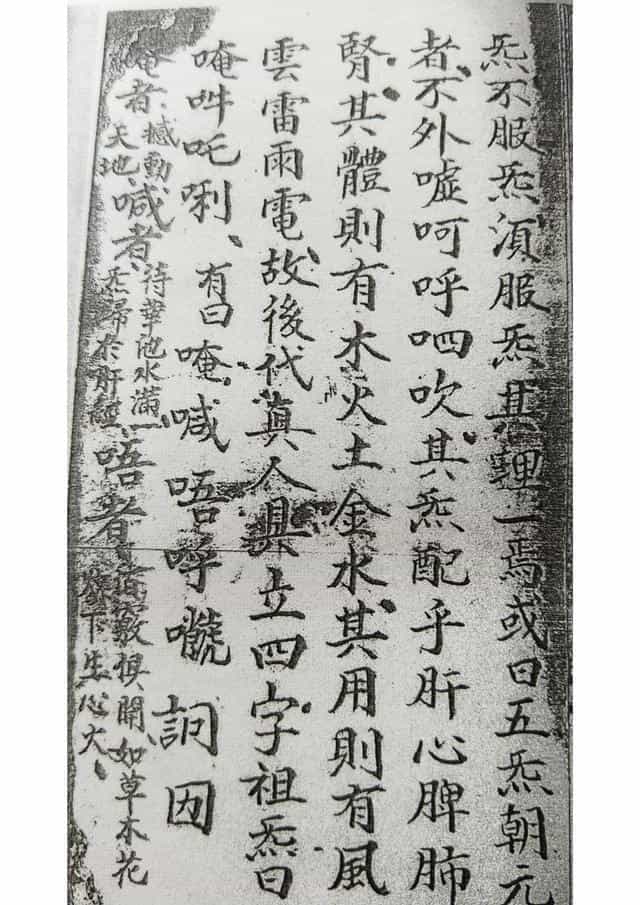 炁不服炁須服炁其理一焉或曰五炁朝元
者不外噓呵呼呬吹其炁配乎肝心脾肺
腎其體則有木火土金水其用則有風
雲雷雨電故後代真人具立四字祖炁曰
唵吽吒唎有曰唵喊唔呼嚨訶㘞
唵者撼動天地喊者待華池水滿一炁歸於肝 唔者 下生心火 開如草木花